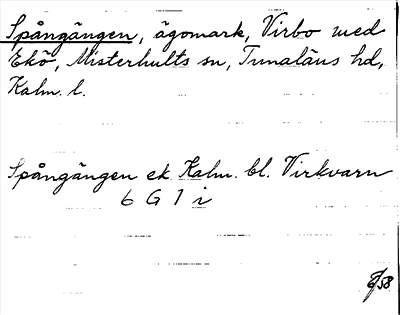 Spångängen, ägomark, Virbo med
Ekö, Misterhults sn, Tunaläns hd,
Kalm. l.
Spångängen ek. Kalm. bl. Virkvarn
6 G 1 i
/58